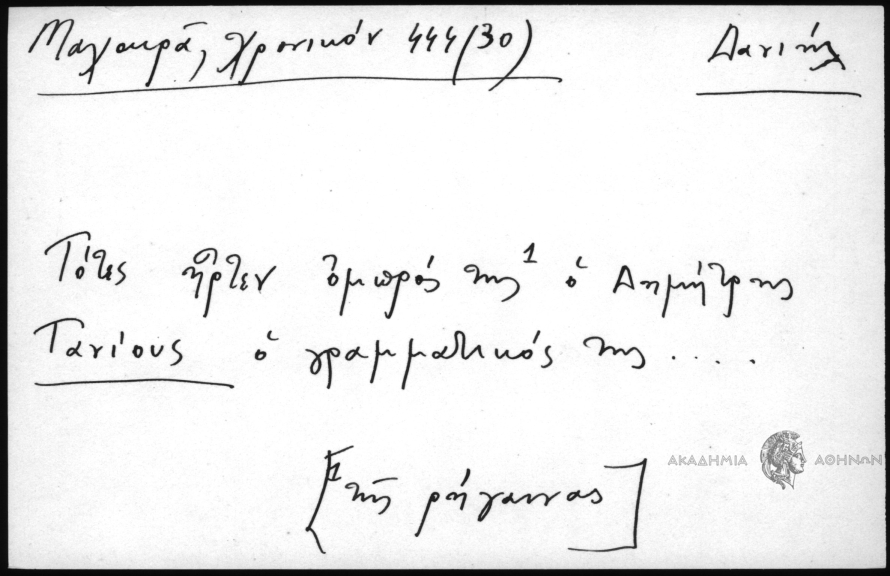 Μαχαιρᾶ, Χρονικόν 444(30)
Δανιήλ
Τότες ἦρτεν ὀμπρός της¹ ὁ Δημήτρης
Τανίους ὁ γραμματικός της ....
[¹ τῆς ρήγαινας]
ΑΚΑΔΗΜΙΑ ΑΘΗΝΩΝ